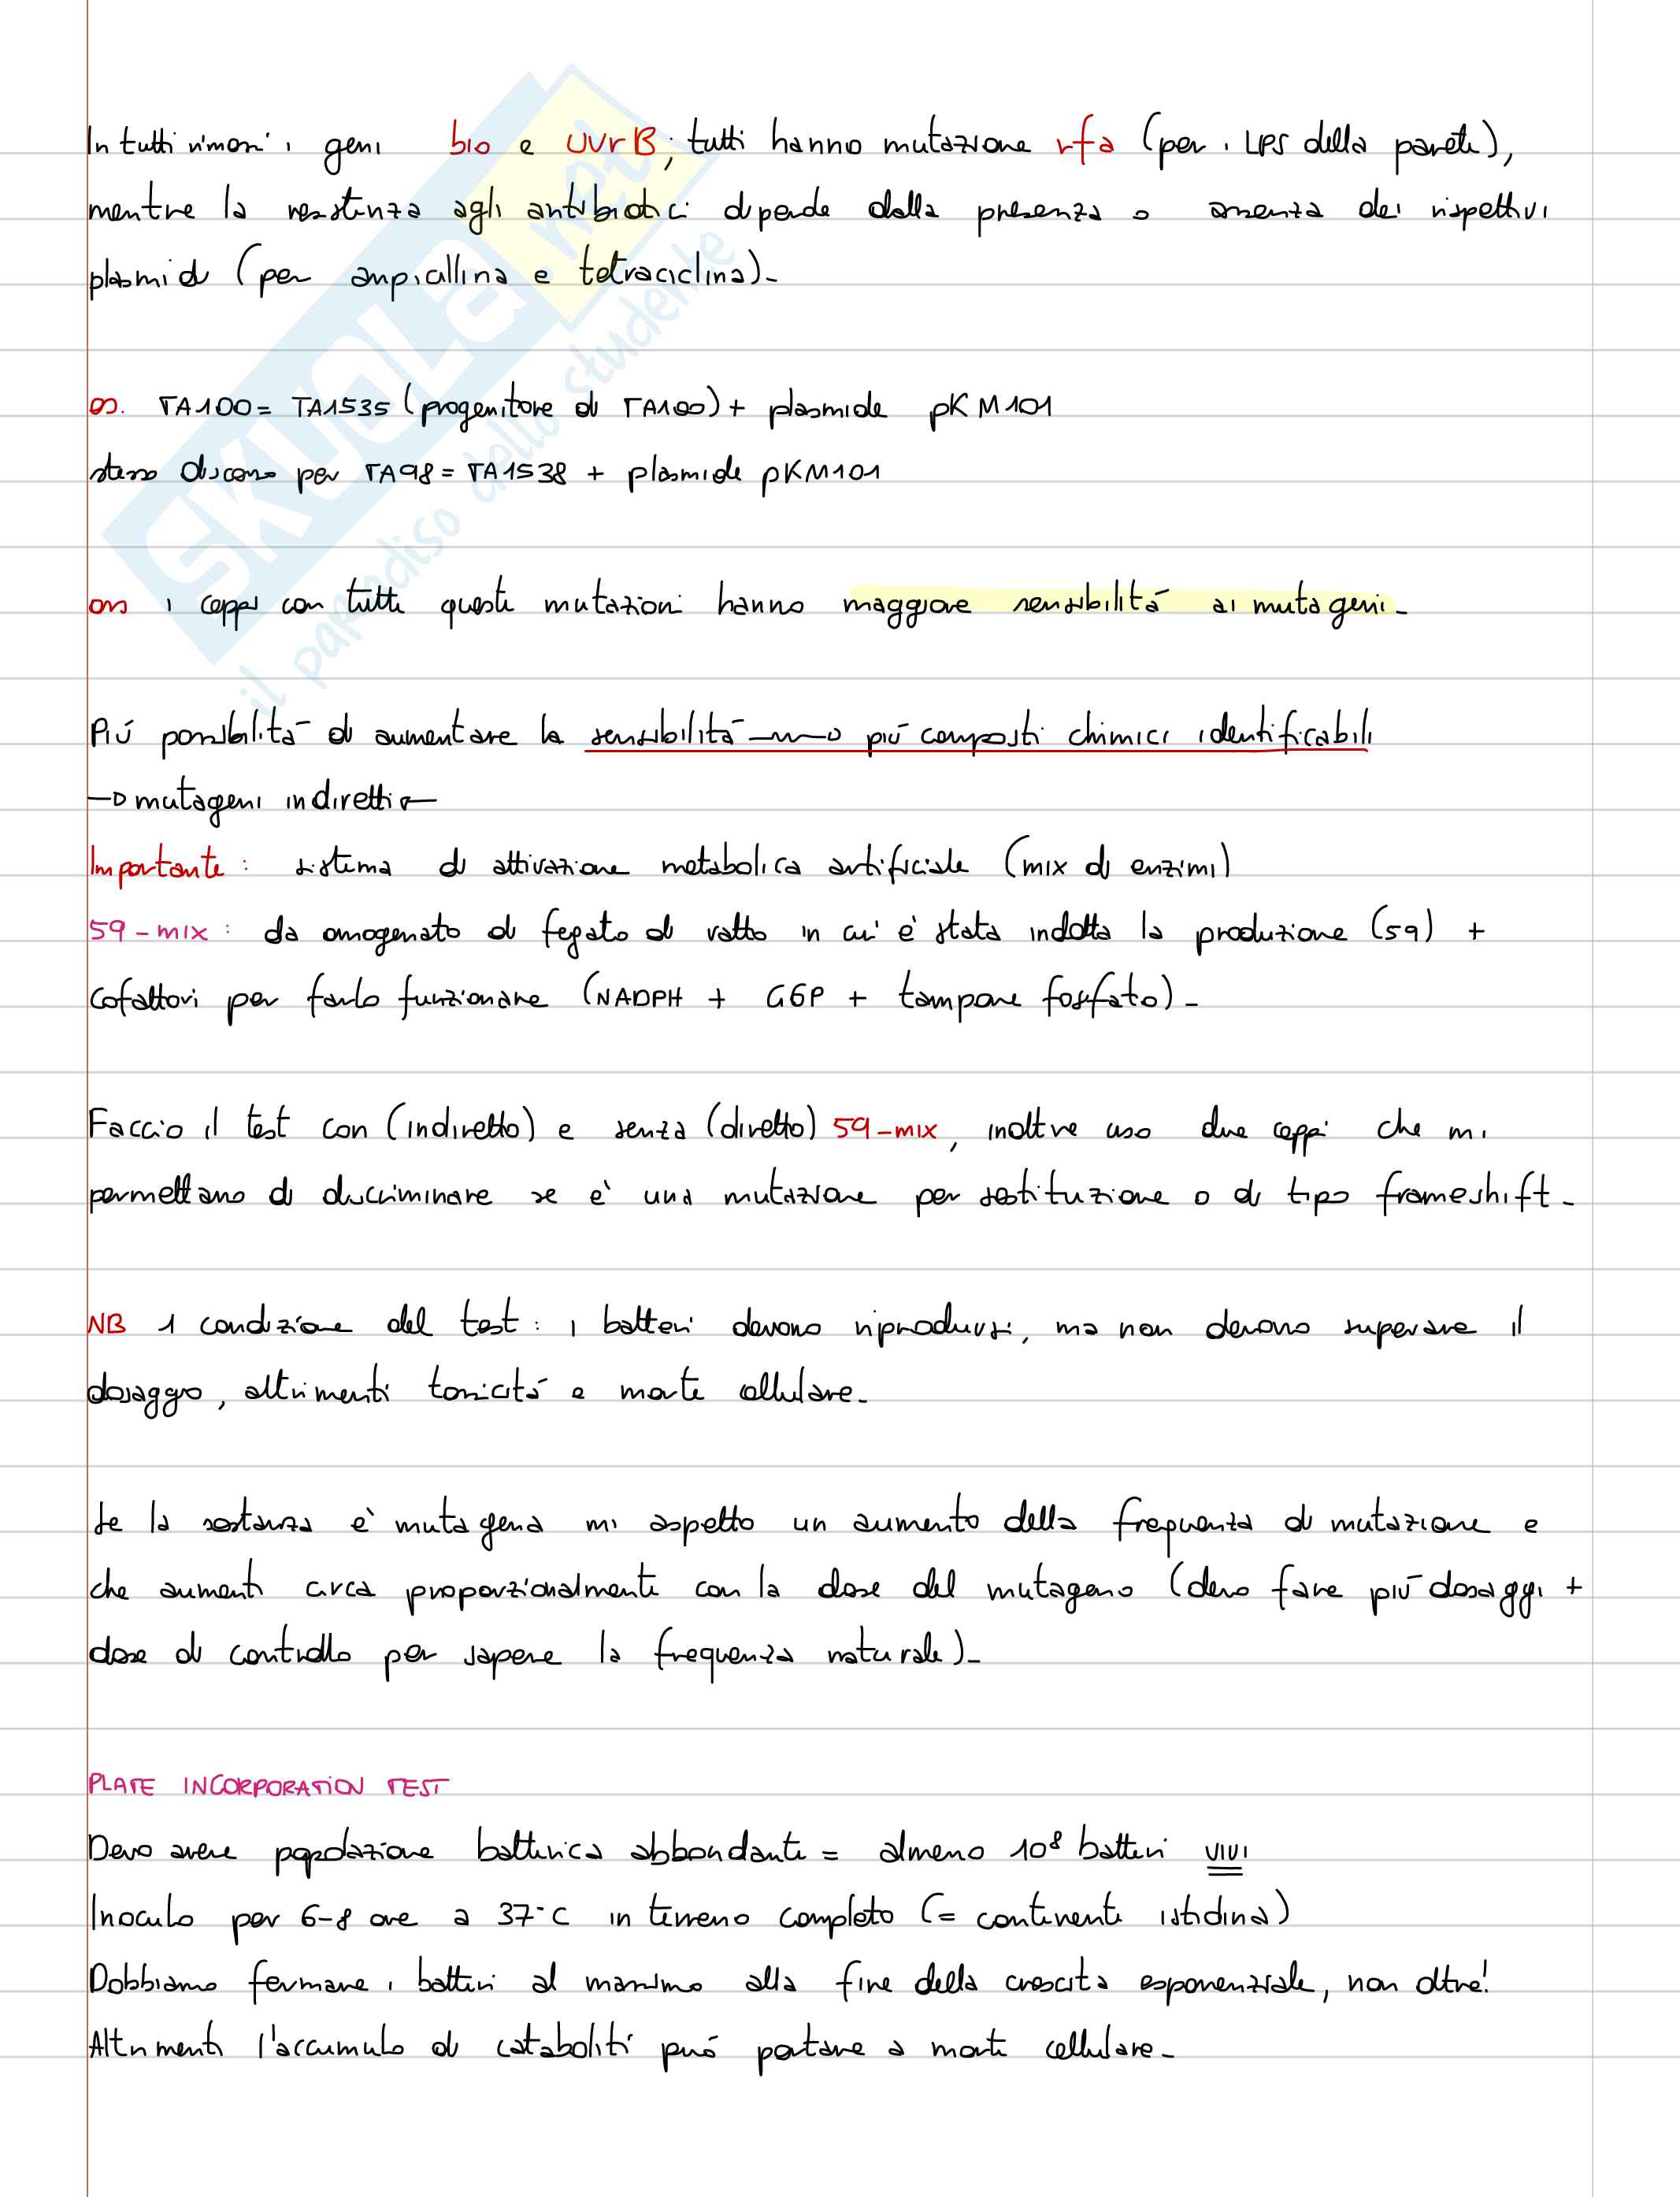 In tutti rimossi i geni bio e UVrB; tutti hanno mutazione rfa (per i LPS della parete),
mentre la resistenza agli antibiotici dipende dalla presenza o assenza dei rispettivi
plasmidi (per ampicillina e tetraciclina)-
es. TA100 = TA1535 (progenitore di TA100) + plasmide pKM101
stesso discorso per TA98 = TA1538 + plasmide pKM101
oss i ceppi con tutte queste mutazioni hanno maggiore sensibilità ai mutageni-
Più possibilità di aumentare la sensibilità → più composti chimici identificabili
→ mutageni indiretti ←
Importante: sistema di attivazione metabolica artificiale (mix di enzimi)
S9-mix: da omogenato di fegato di ratto in cui è stata indotta la produzione (S9) +
cofattori per farlo funzionare (NADPH + G6P + tampone fosfato)-
Faccio il test con (indiretto) e senza (diretto) S9-mix, inoltre uso due ceppi che mi
permettano di discriminare se è una mutazione per sostituzione o di tipo frameshift-
NB 1 condizione del test: i batteri devono riprodursi, ma non devono superare il
dosaggio, altrimenti tossicità e morte cellulare-
Se la sostanza è mutagena mi aspetto un aumento della frequenza di mutazione e
che aumenti circa proporzionalmente con la dose del mutageno (devo fare più dosaggi +
dose di controllo per sapere la frequenza naturale)-
PLATE INCORPORATION TEST
Devo avere popolazione batterica abbondante = almeno 10⁸ batteri VIVI
Inoculo per 6-8 ore a 37°C in terreno completo (= contenente istidina)
Dobbiamo fermare i batteri al massimo alla fine della crescita esponenziale, non oltre!
Altrimenti l'accumulo di cataboliti può portare a morte cellulare-
SKUOLA.net
il paradiso dello studente